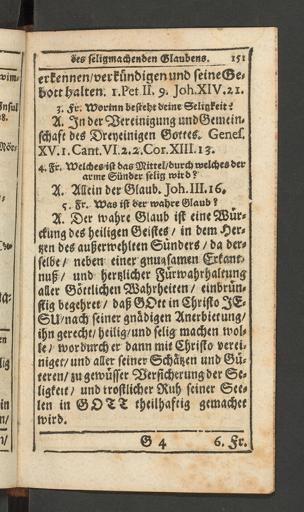 des seligmachenden Glaubens. 151
erkennen/verkündigen und seine Ge-
bott halten. 1. Pet. II. 9. Joh. XIV. 21.
3. Fr. Worinn besteht deine Seligkeit?
A. In der Vereinigung und Gemein-
schaft des Dreyeinigen Gottes. Genes.
XV. 1. Cant. VI. 2. 2. Cor. XIII. 13.
4. Fr. Welches ist das Mittel/durch welches der
arme Sünder selig wird?
A. Allein der Glaub. Joh. III. 16.
5. Fr. Was ist der wahre Glaub?
A. Der wahre Glaub ist eine Wür-
ckung des heiligen Geistes / in dem Her-
tzen des außerwehlten Sünders / da der-
selbe / neben einer gnugsamen Erkant-
nuß / und hertzlicher Fürwahrhaltung
aller Göttlichen Wahrheiten / einbrün-
stig begehret / daß GOtt in Christo JE-
SU/nach seiner gnädigen Anerbietung/
ihn gerecht/heilig/und selig machen wol-
le / wordurch er dann mit Christo verei-
niget/und aller seiner Schätzen und Gü-
teren/zu gewüsser Versicherung der Se-
ligkeit / und trostlicher Ruh seiner See-
len in GOTT theilhaftig gemachet
wird.
G 4 6. Fr.